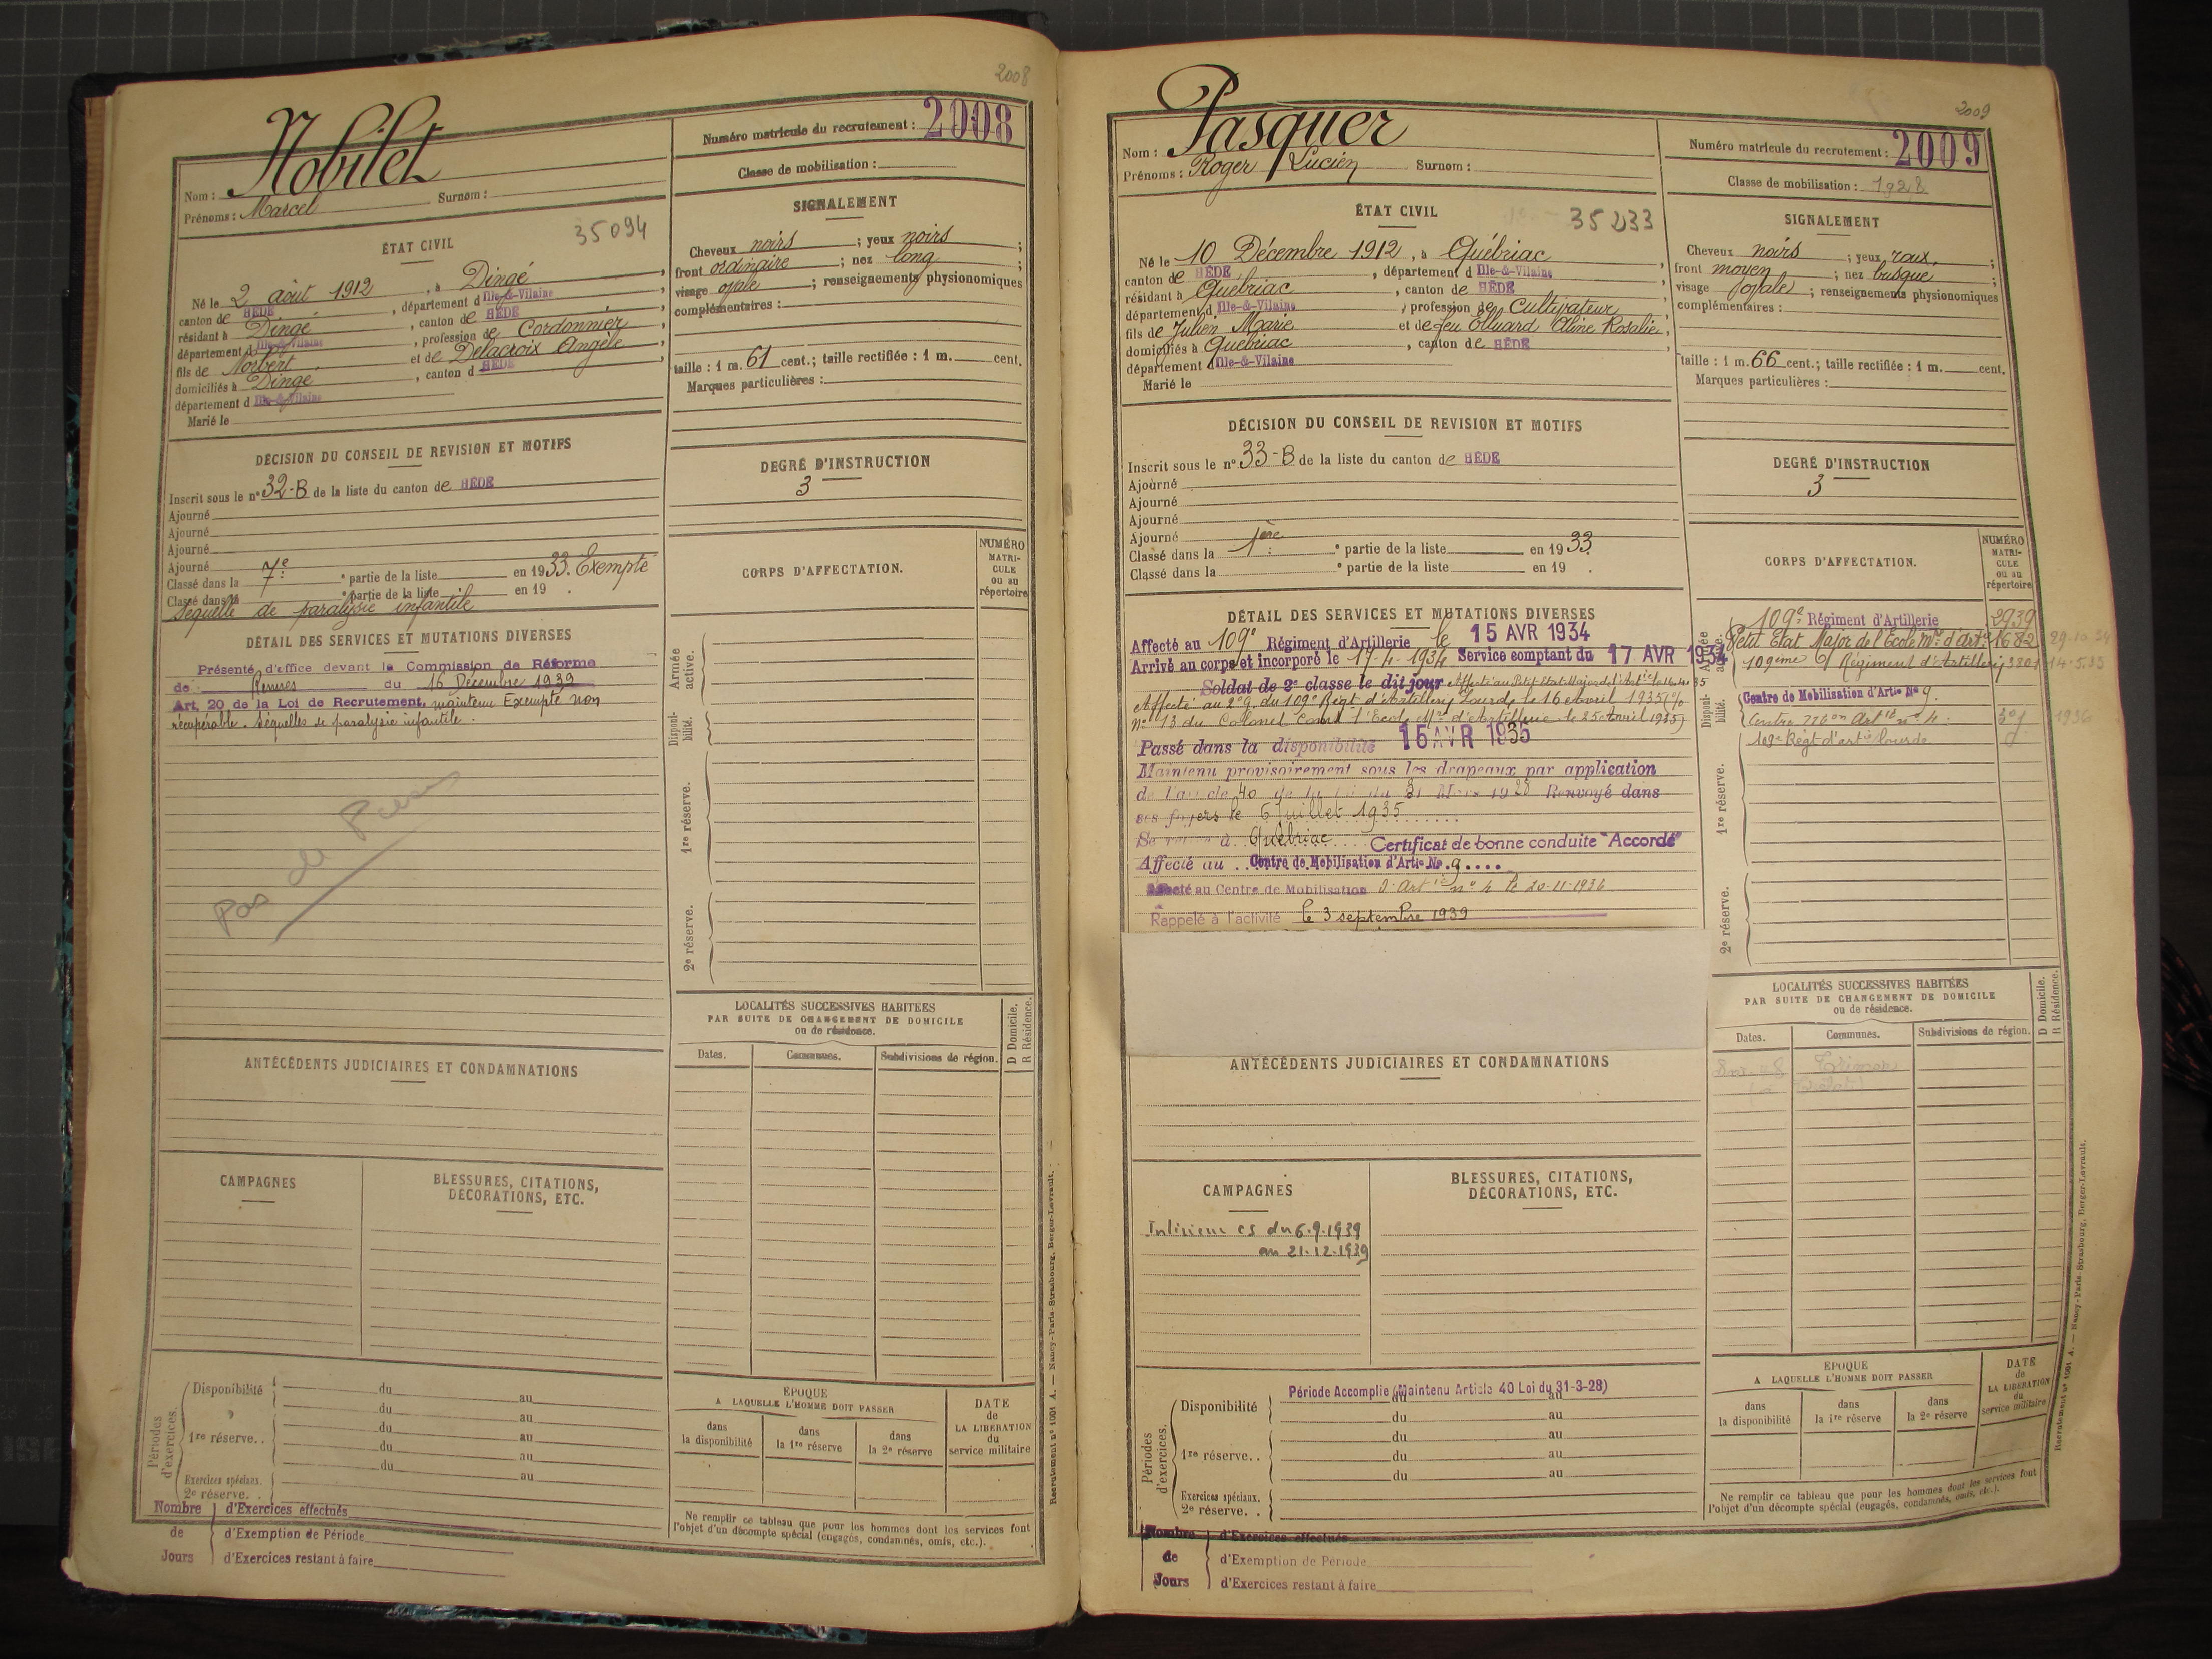 2008
Nom : Nobilet
Prénoms : Marcel Surnom :
Numéro matricule du recrutement : 2008
Classe de mobilisation :
ÉTAT CIVIL
35094
Né le 2 août 1912, à Dingé,
canton de HÉDÉ, département d Ille-&-Vilaine,
résidant à Dingé, canton de HÉDÉ,
département d Ille-&-Vilaine, profession de Cordonnier,
fils de Norbert et de Delacroix Angèle,
domiciliés à Dingé, canton d HÉDÉ,
département d Ille-&-Vilaine
Marié le
SIGNALEMENT
Cheveux noirs ; yeux noirs ;
front ordinaire ; nez long ;
visage ovale ; renseignements physionomiques
complémentaires :
taille : 1 m. 61 cent.; taille rectifiée : 1 m. cent.
Marques particulières :
DÉCISION DU CONSEIL DE REVISION ET MOTIFS
Inscrit sous le n° 32-B de la liste du canton de HÉDÉ
Ajourné
Ajourné
Ajourné
Ajourné
Classé dans la 7e ° partie de la liste en 1933. Exempté
Classé dans la ° partie de la liste en 19 .
Séquelle de paralysie infantile
DEGRÉ D'INSTRUCTION
3
DÉTAIL DES SERVICES ET MUTATIONS DIVERSES
Présenté d'office devant la Commission de Réforme
de Rennes du 16 Décembre 1939
Art. 20 de la Loi de Recrutement, maintenu Exempté non
récupérable. Séquelles de paralysie infantile.
Pas de
CORPS D'AFFECTATION.
NUMÉRO
MATRI-
CULE
ou au
répertoire
Armée
active.
Disponi-
bilité.
1re réserve.
2e réserve.
LOCALITÉS SUCCESSIVES HABITÉES
PAR SUITE DE CHANGEMENT DE DOMICILE
ou de résidence.
Dates. Communes. Subdivisions de région.
D Domicile.
R Résidence.
ANTÉCÉDENTS JUDICIAIRES ET CONDAMNATIONS
CAMPAGNES
BLESSURES, CITATIONS,
DÉCORATIONS, ETC.
Périodes
d'exercices.
Disponibilité du au
du au
1re réserve. . du au
du au
du au
Exercices spéciaux.
2e réserve. .
Nombre d'Exercices effectués
de d'Exemption de Période
Jours d'Exercices restant à faire
ÉPOQUE
A LAQUELLE L'HOMME DOIT PASSER
dans
la disponibilité
dans
la 1re réserve
dans
la 2e réserve
DATE
de
LA LIBÉRATION
du
service militaire
Ne remplir ce tableau que pour les hommes dont les services font
l'objet d'un décompte spécial (engagés, condamnés, omis, etc.).
Recrutement n° 1001 A. — Nancy-Paris-Strasbourg, Berger-Levrault. —
2009
Nom : Pasquer
Prénoms : Roger Lucien Surnom :
Numéro matricule du recrutement : 2009
Classe de mobilisation : 1928
ÉTAT CIVIL
35233
Né le 10 Décembre 1912, à Québriac,
canton de HÉDÉ, département d Ille-&-Vilaine,
résidant à Québriac, canton de HÉDÉ,
département d Ille-&-Vilaine, profession de Cultivateur,
fils de Julien Marie et de feu Elluard Aline Rosalie,
domiciliés à Québriac, canton de HÉDÉ
département d Ille-&-Vilaine
Marié le
SIGNALEMENT
Cheveux noirs ; yeux roux ;
front moyen ; nez busqué ;
visage ovale ; renseignements physionomiques
complémentaires :
taille : 1 m. 66 cent.; taille rectifiée : 1 m. cent.
Marques particulières :
DÉCISION DU CONSEIL DE REVISION ET MOTIFS
Inscrit sous le n° 33-B de la liste du canton de HÉDÉ
Ajourné
Ajourné
Ajourné
Ajourné
Classé dans la 1ère ° partie de la liste en 1933.
Classé dans la ° partie de la liste en 19 .
DEGRÉ D'INSTRUCTION
3
DÉTAIL DES SERVICES ET MUTATIONS DIVERSES
Affecté au 109e Régiment d'Artillerie le 15 AVR 1934
Arrivé au corps et incorporé le 17-4-1934 Service comptant du 17 AVR 1934
Soldat de 2e classe le dit jour Affecté au Petit Etat-Major
Affecté au 2e g. du 109e Régt d'Artillerie Lourde le 16 Avril 1935
n° 13 du Colonel Comt l'Ecole Mre d'Artillerie le 25 Avril 1935)
Passé dans la disponibilité 15 AVR 1935
Maintenu provisoirement sous les drapeaux par application
de l'article 40 de la loi du 31 Mars 1928 Renvoyé dans
ses foyers le 6 Juillet 1935
Se retire à Québriac Certificat de bonne conduite "Accordé"
Affecté au Centre de Mobilisation d'Artie No 9
Affecté au Centre de Mobilisation d'Artie n° 4 le 20-11-1936
Rappelé à l'activité le 3 septembre 1939
CORPS D'AFFECTATION.
NUMÉRO
MATRI-
CULE
ou au
répertoire
Armée
active.
109e Régiment d'Artillerie 2939
Petit Etat Major de l'Ecole Mre d'Artie 1682 29-10-34
109ème Régiment d'Artillerie 3801 14-5-35
Disponi-
bilité.
Centre de Mobilisation d'Artie No 9.
Centre mon Artie n° 4. 1936
109e Régt d'artie lourde
1re réserve.
2e réserve.
LOCALITÉS SUCCESSIVES HABITÉES
PAR SUITE DE CHANGEMENT DE DOMICILE
ou de résidence.
Dates. Communes. Subdivisions de région.
D Domicile.
R Résidence.
ANTÉCÉDENTS JUDICIAIRES ET CONDAMNATIONS
CAMPAGNES
Intérieur cs du 6.9.1939
au 21.12.1939
BLESSURES, CITATIONS,
DÉCORATIONS, ETC.
Périodes
d'exercices.
Période Accomplie (Maintenu Article 40 Loi du 31-3-28)
Disponibilité du
du au
du au
1re réserve. . du au
du au
Exercices spéciaux.
2e réserve. .
Nombre d'Exercices effectués
de d'Exemption de Période
Jours d'Exercices restant à faire
ÉPOQUE
A LAQUELLE L'HOMME DOIT PASSER
dans
la disponibilité
dans
la 1re réserve
dans
la 2e réserve
DATE
de
LA LIBÉRATION
du
service militaire
Ne remplir ce tableau que pour les hommes dont les services font
l'objet d'un décompte spécial (engagés, condamnés, omis, etc.).
Recrutement n° 1001 A. — Nancy-Paris-Strasbourg, Berger-Levrault.